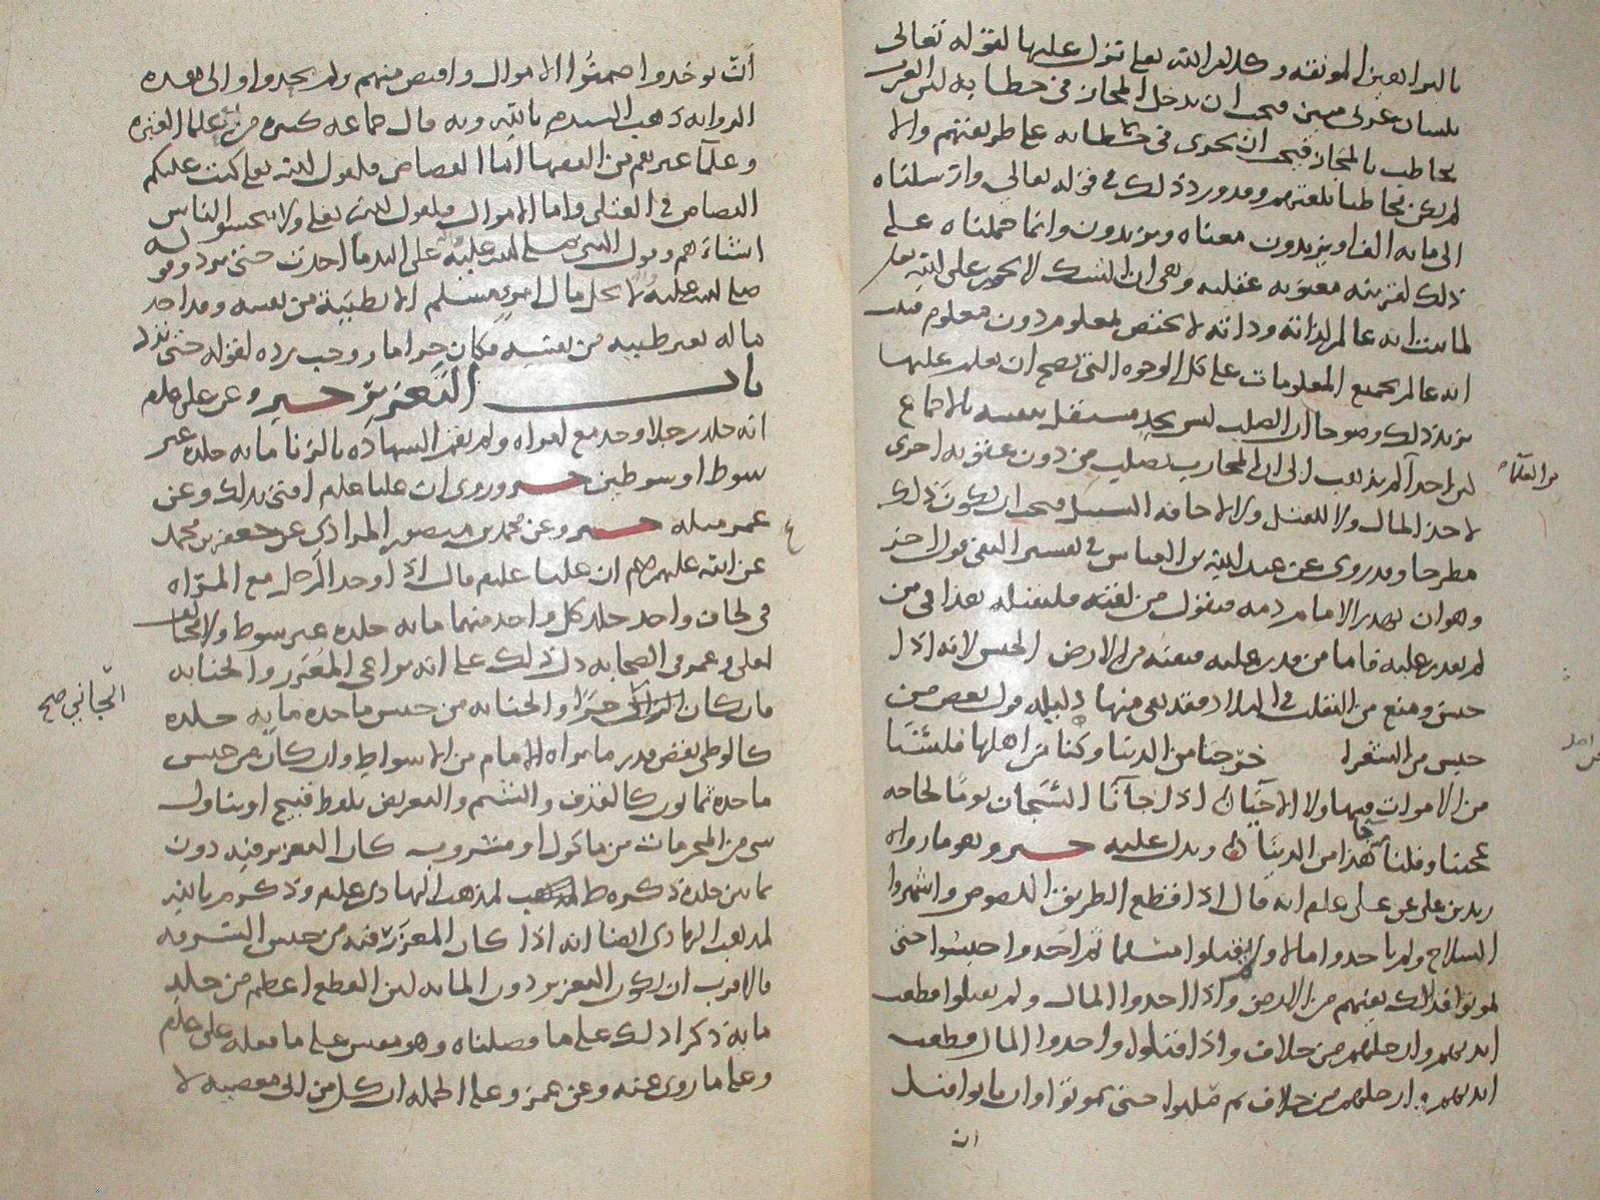 بلسان عربي مبين فيجب ان يدخل المجاز في خطابه لان العرب
تخاطب بالمجاز فيجب ان يجري في خطابه على طريقتهم والا
لم يكن مخاطبا بلغتهم وقد ورد ذلك في قوله تعالى وارسلناه
الى مائه الف او يزيدون معناه ويزيدون وانما حملناه على
ذلك لقرينه معنويه عقليه وهي ان الشك لا يجوز على الله تعالى
لما ثبت انه عالم لذاته وذاته لا تختص بمعلوم دون معلوم فثبت
انه عالم بجميع المعلومات على كل الوجوه التي يصح ان تعلم عليها
يزيد ذلك وضوحا ان الصلب ليس بحد مستقل بنفسه بالاجماع
من العلماء
لان احدا لم يذهب الى ان المحارب يصلب من دون عقوبه اخرى
لاخذ المال ولا للقتل ولا لاخافه السبيل فيجب ان يكون ذلك
مطرحا وقد روي عن عبد الله بن العباس في تفسير النفي قول اخر
وهو ان يهدر الامام دمه فيقول من لقيه فليقتله هذا في من
لم يقدر عليه فاما من قدر عليه فنفيه من الارض الحبس لانه اذا
حبس ومنع من التقلب في البلاد فقد نفي منها دليله قول بعض من
حبس من الشعرا خرجنا من الدنيا وكنا من اهلها فلسنا
من الاموات فيها ولا الاحيا اذا جآنا السجان يوما لحاجه
عجبنا وقلنا جا هذا من الدنيا ويدل عليه خبر وهو ما رواه
زيد بن علي عن علي علم انه قال اذا قطع الطريق اللصوص واشهروا
السلاح ولم ياخذوا مالا ولم يقتلوا مسلما ثم اخذوا حبسوا حتى
يموتوا فذلك نفيهم من الارض واذا اخذوا المال ولم يقتلوا قطعت
ايديهم وارجلهم من خلاف واذا قتلوا واخذوا المال قطعت
ايديهم وارجلهم من خلاف ثم صلبوا حتى يموتوا وان تابوا قبل
ان
ان يوخذوا ضمنوا الاموال واقتص منهم ولم يحدوا والى هذه
وعلما غيرهم من الفقها اما القصاص فلقول الله تعالى كتب عليكم
القصاص في القتلى واما الاموال فلقول الله تعالى ولا تبخسوا الناس
اشياءهم وقول النبي صلى الله عليه على اليد ما اخذت حتى ترد وقوله
صلى الله عليه لا يحل مال امرئ مسلم الا بطيبة من نفسه وقد اخذ
ماله بغير طيبه من نفسه فكان حراما ووجب رده لقوله حتى ترد
باب التعزير خبر وعن علي علم
انه جلد رجلا وجد مع امراه ولم تقم الشهاده بالزنا مائه جلده غير
سوط او سوطين خبر وروي ان عليا علم افتى بذلك وعن
عمر مثله خبر وعن محمد بن منصور المرادي عن جعفر بن محمد
عن ابيه عليهم ان عليا علم قال اذا وجد الرجل مع المراه
في لحاف واحد جلد كل واحد منهما مائه جلده غير سوط ولا مخالف
لعلي وعمر في الصحابه دل ذلك على انه يراعي المعزر والجنايه
الجاني صح
فان كان خبرا والجنايه من جنس ما حده مايه جلده
كالوطي نقص قدر ما يراه الامام من الاسواط وان كان من جنس
ما حده ثمانون كالقذف والشتم والتعريض بلفظ قبيح او يتناول
شي من المحرمات من ماكول او مشروب كان التعزير فيه دون
ثمانين جلده ذكره ط لمذهب الهادي علم وذكر م بالله
لمذهب الهادي ايضا انه اذا كان المعزر فيه من جنس السرقه
فالاقرب ان يكون التعزير دون المائه لان القطع اعظم من جلد
مايه ذكرا ذلك على ما فصلناه وهو مقيس على ما فعله علي علم
وعلى ما روي عنه وعن عمر وعلى الجمله ان كل من اتى معصيه لا